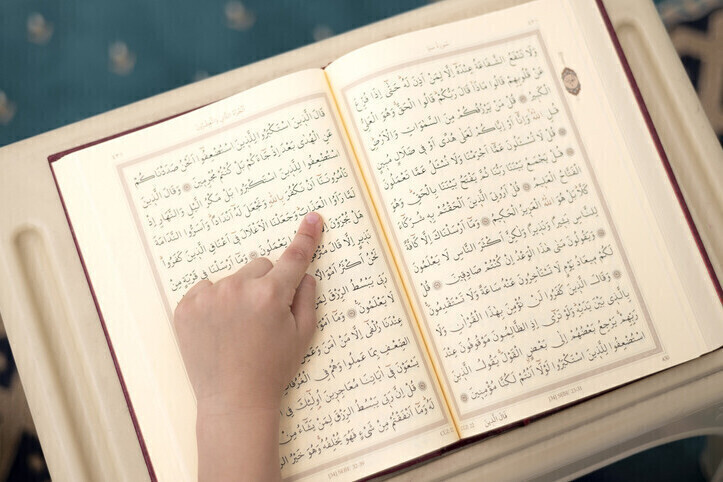 سورة سبأ
وَلَا تَنْفَعُ الشَّفَاعَةُ عِنْدَهُٓ اِلَّا لِمَنْ اَذِنَ لَهُۜ حَتّٰٓى اِذَا فُزِّعَ
عَنْ قُلُوبِهِمْ قَالُوا مَاذَا قَالَ رَبُّكُمْۜ قَالُوا الْحَقَّۚ وَهُوَ الْعَلِيُّ
الْكَبِيرُ قُلْ مَنْ يَرْزُقُكُمْ مِنَ السَّمٰوَاتِ وَالْاَرْضِۜ
قُلِ اللّٰهُۙ وَاِنَّٓا اَوْ اِيَّاكُمْ لَعَلٰى هُدًى اَوْ فِي ضَلَالٍ مُبِينٍ
قُلْ لَا تُسْـَٔلُونَ عَمَّٓا اَجْرَمْنَا وَلَا نُسْـَٔلُ عَمَّا تَعْمَلُونَ
قُلْ يَجْمَعُ بَيْنَنَا رَبُّنَا ثُمَّ يَفْتَحُ بَيْنَنَا بِالْحَقِّۜ وَهُوَ
الْفَتَّاحُ الْعَلِيمُ قُلْ اَرُونِيَ الَّذِينَ اَلْحَقْتُمْ بِهِ شُرَكَٓاءَ
كَلَّاۜ بَلْ هُوَ اللّٰهُ الْعَزِيزُ الْحَكِيمُ وَمَٓا اَرْسَلْنَاكَ اِلَّا كَٓافَّةً
لِلنَّاسِ بَشِيرًا وَنَذِيرًا وَلٰكِنَّ اَكْثَرَ النَّاسِ لَا يَعْلَمُونَ
وَيَقُولُونَ مَتٰى هٰذَا الْوَعْدُ اِنْ كُنْتُمْ صَادِقِينَ قُلْ
لَكُمْ مِيعَادُ يَوْمٍ لَا تَسْتَأْخِرُونَ عَنْهُ سَاعَةً وَلَا تَسْتَقْدِمُونَ
وَقَالَ الَّذِينَ كَفَرُوا لَنْ نُؤْمِنَ بِهٰذَا الْقُرْاٰنِ وَلَا
بِالَّذِي بَيْنَ يَدَيْهِۜ وَلَوْ تَرٰٓى اِذِ الظَّالِمُونَ مَوْقُوفُونَ عِنْدَ
رَبِّهِمْۚ يَرْجِعُ بَعْضُهُمْ اِلٰى بَعْضٍ الْقَوْلَۚ يَقُولُ الَّذِينَ
اسْتُضْعِفُوا لِلَّذِينَ اسْتَكْبَرُوا لَوْلَٓا اَنْتُمْ لَكُنَّا مُؤْمِنِينَ
قَالَ الَّذِينَ
قَالَ الَّذِينَ اسْتَكْبَرُوا لِلَّذِينَ اسْتُضْعِفُٓوا اَنَحْنُ صَدَدْنَاكُمْ
عَنِ الْهُدٰى بَعْدَ اِذْ جَٓاءَكُمْ بَلْ كُنْتُمْ مُجْرِمِينَ وَقَالَ الَّذِينَ
اسْتُضْعِفُوا لِلَّذِينَ اسْتَكْبَرُوا بَلْ مَكْرُ الَّيْلِ وَالنَّهَارِ اِذْ
تَأْمُرُونَنَٓا اَنْ نَكْفُرَ بِاللّٰهِ وَنَجْعَلَ لَهُٓ اَنْدَادًاۜ وَاَسَرُّوا النَّدَامَةَ
لَمَّا رَاَوُا الْعَذَابَۜ وَجَعَلْنَا الْاَغْلَالَ فِٓي اَعْنَاقِ الَّذِينَ كَفَرُواۜ
هَلْ يُجْزَوْنَ يَعْمَلُونَ وَمَٓا اَرْسَلْنَا فِي قَرْيَةٍ مِنْ
نَذِيرٍ اِلَّا قَالَ
نَحْنُ اَكْثَرُ اَمْوَالًا
رَبِّي يَبْسُطُ الرِّزْقَ
لَا يَعْلَمُونَ وَمَٓا
عِنْدَنَا زُلْفٰٓى اِلَّا مَنْ اٰمَنَ وَعَمِلَ
الضِّعْفِ بِمَا عَمِلُوا وَهُمْ فِي الْغُرُفَاتِ
يَسْعَوْنَ فِٓي اٰيَاتِنَا مُعَاجِزِينَ اُولٰٓئِكَ فِي
قُلْ اِنَّ رَبِّي يَبْسُطُ الرِّزْقَ لِمَنْ يَشَٓاءُ مِنْ
لَهُۜ وَمَٓا اَنْفَقْتُمْ مِنْ شَيْءٍ فَهُوَ يُخْلِفُهُۚ وَهُوَ خَيْرُ